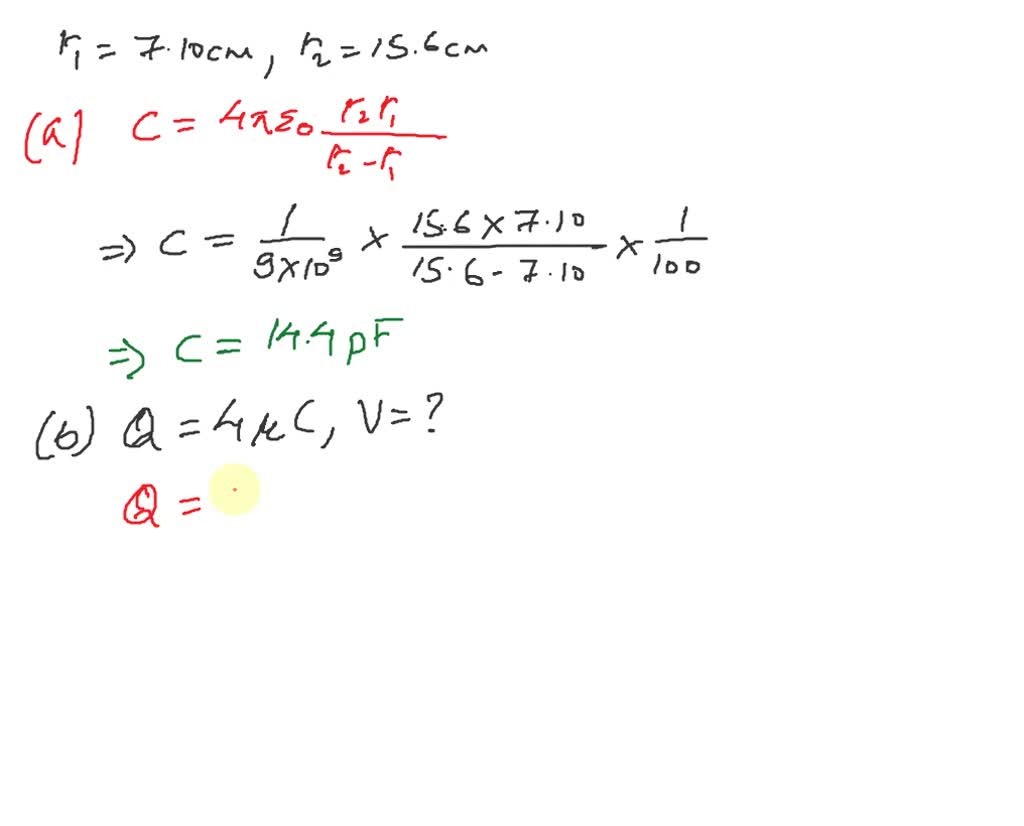 r₁ = 7.10cm, r₂ = 15.6cm
(a) C = 4πε₀ (r₂r₁)/(r₂-r₁)
⇒ C = 1/(9×10⁹) × (15.6×7.10)/(15.6-7.10) × 1/100
⇒ C = 14.4 pF
(b) Q = 4μC, V = ?
Q =